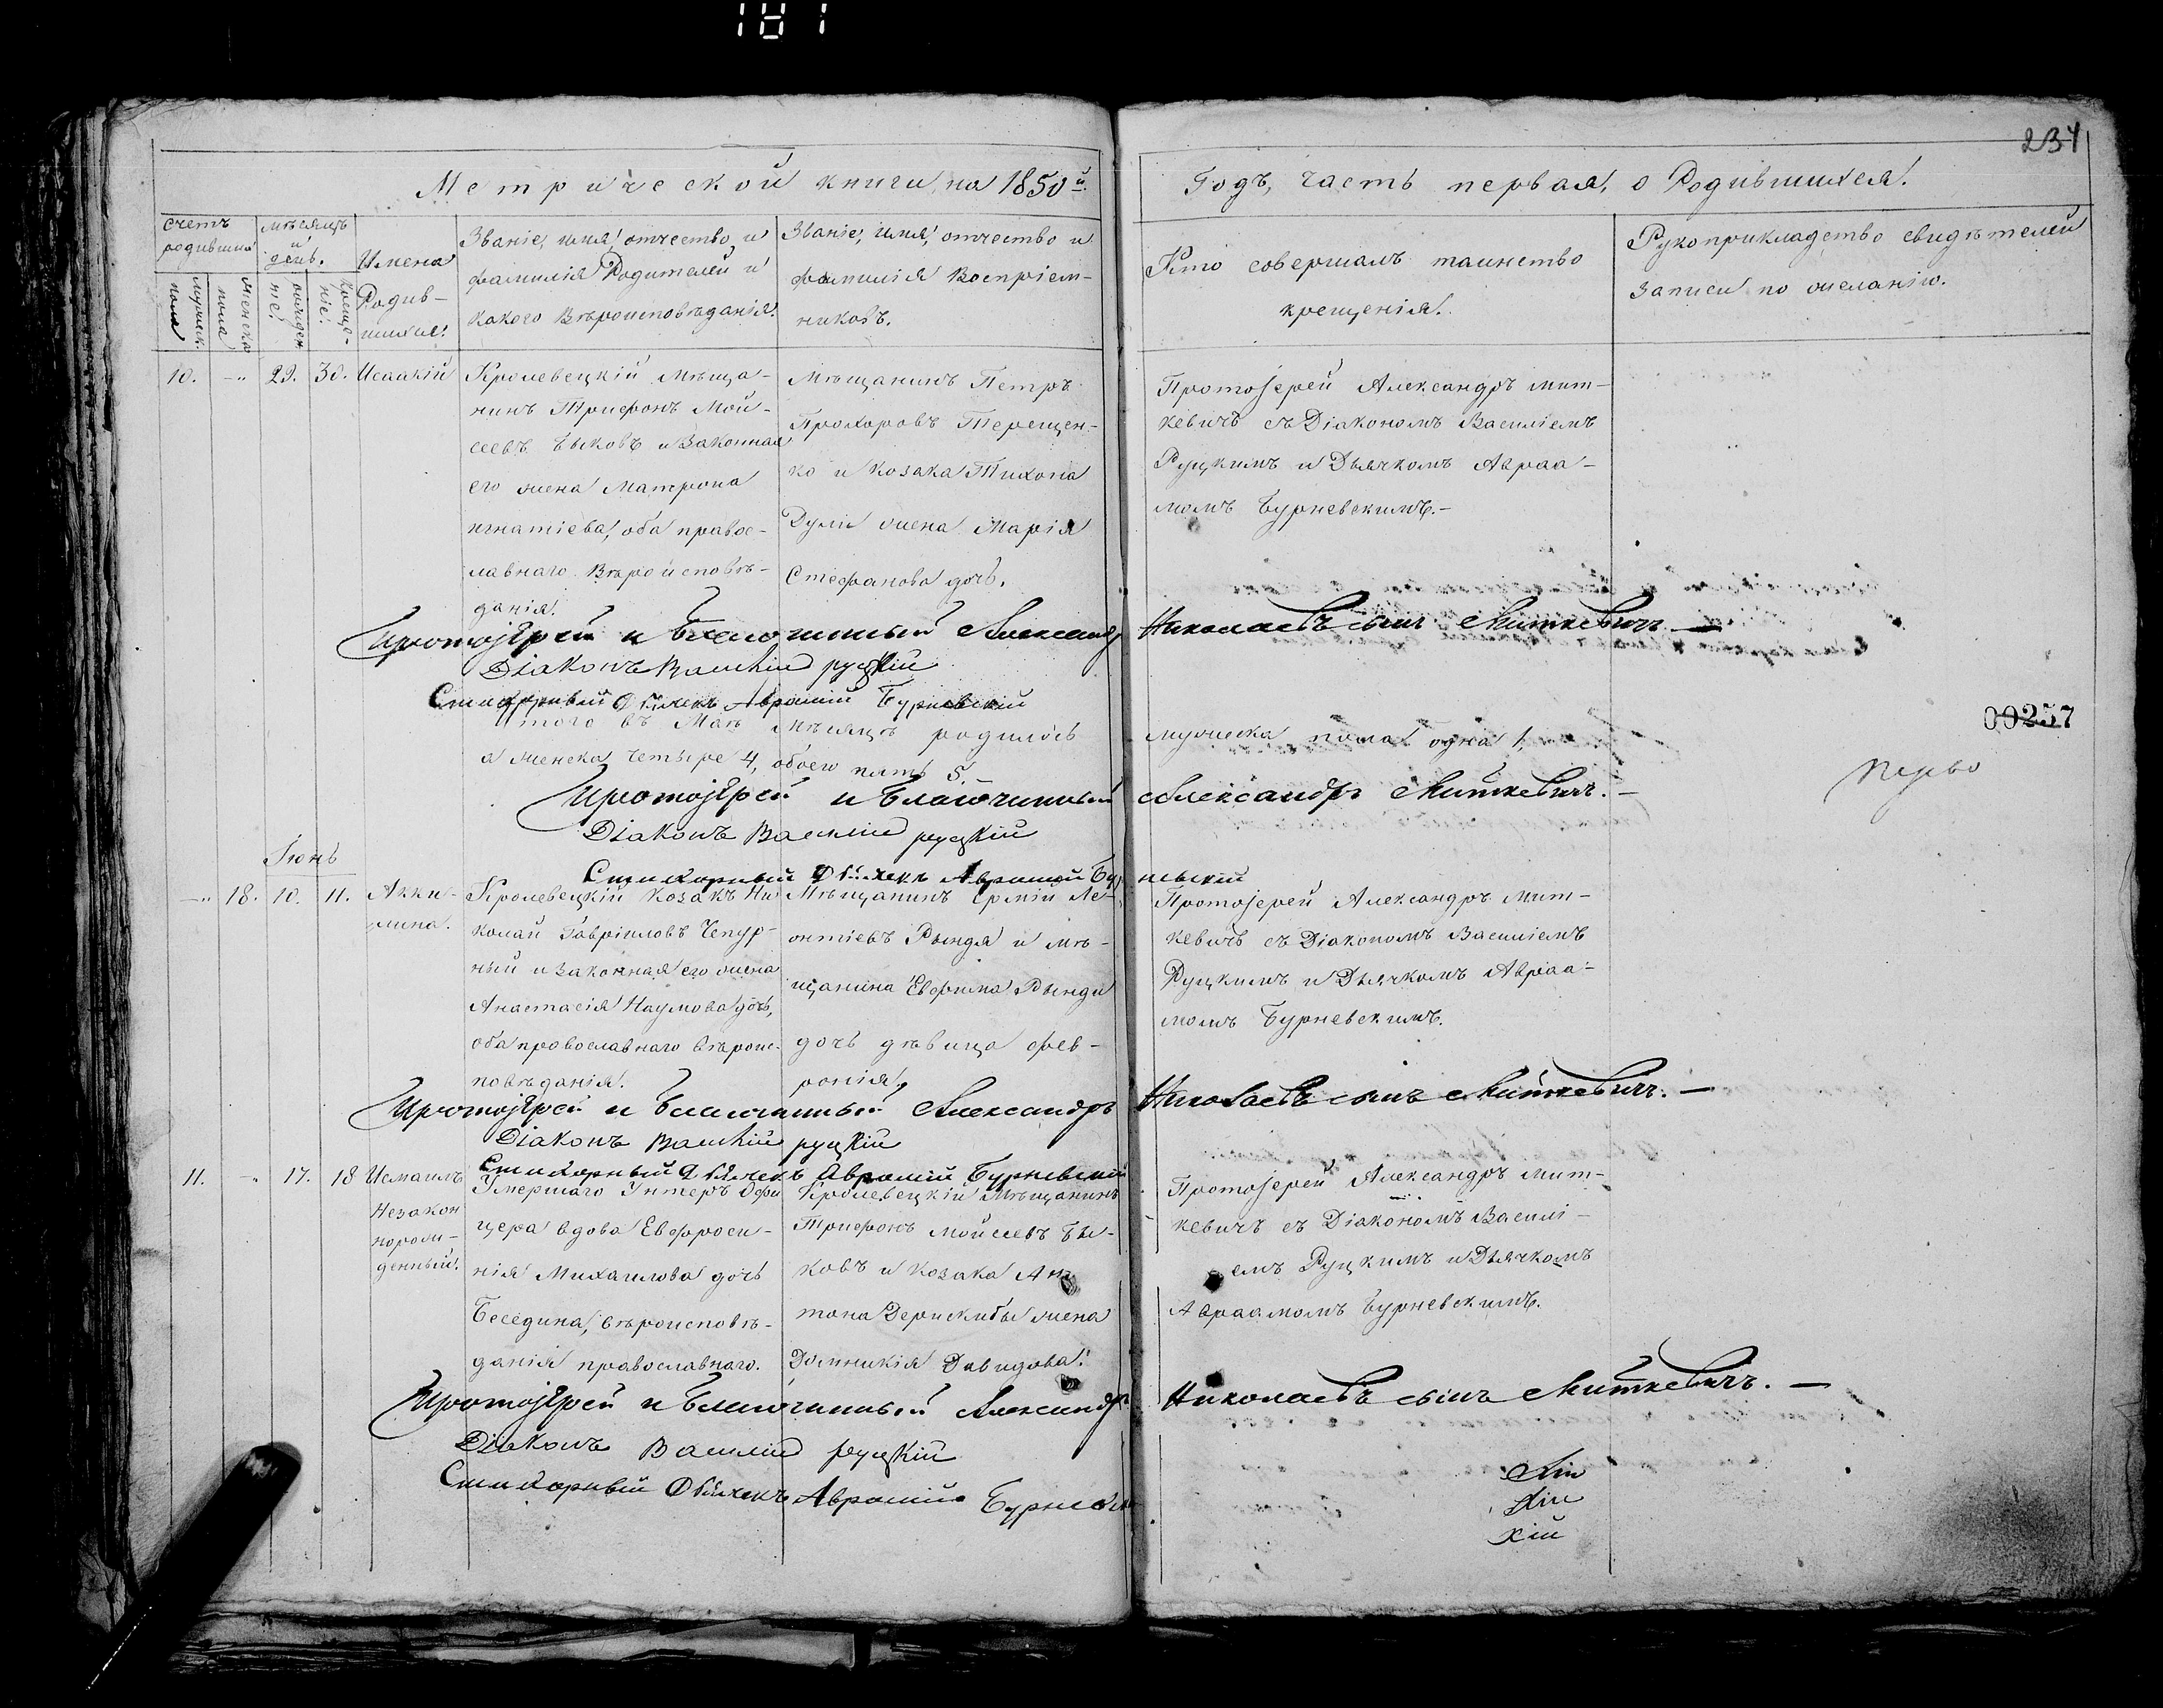 181
234
Метрической книги, на 1850й.
Годъ, часть первая, о Родившихся.
Счетъ родившихся
мужеск. пола
женска пола
мѣсяцъ и день.
рожденіе.
крещеніе.
Имена
Родив-
шихся.
Званіе, имя, отчество, и
фамилія Родителей и
какого Вѣроисповѣданія.
Званіе, имя, отчество и
фамилія Воспріем-
никовъ.
Кто совершалъ таинство
крещенія.
Рукоприкладство свидѣтелей
Записи по желанію.
10. -" 29. 30. Исаакій
Кролевецкій Мѣща-
нинъ Трифонъ Мой-
сеевъ Быковъ и Законная
его жена Матрона
Игнатіева, оба правос-
лавнаго Вѣроисповѣ-
данія.
Мѣщанинъ Петръ
Прохоровъ Терещен-
ко и козака Тихона
Дулі жена Марія
Стефанова дочь.
Протоіерей Александръ Мит-
кевичъ съ Діакономъ Василіемъ
Руцкимъ и Дьячкомъ Авраа-
момъ Бурневскимъ.-
Протоіерей и Благочинный Александр Николаевъ сынъ Миткевичъ —
Діаконъ Василій руцкій
Стихарный Дьячекъ Аврамій Бурневскій
Итого въ Маѣ Мѣсяцѣ родилось мужеска пола одна 1,
а женска четыре 4, обоего пять 5.
00257
Протоіерей и Благочинный Александръ Миткевичъ.—
Діаконъ Василій руцкій
Стихарный Дьячекъ Аврамій Бурневскій
Іюнь
-" 18. 10. 11. Акки-
лина.
Кролевецкій козакъ Ни
колай Гавріиловъ Чепур-
ный и законная его жена
Анастасія Наумова дочь,
оба православнаго вѣроис-
повѣданія.
Мѣщанинъ Ермій Ле-
онтіевъ Рында и мѣ-
щанина Евфима Рынди
дочь дѣвица Фев-
ронія.
Протоіерей Александръ Мит-
кевичъ съ Діакономъ Василіемъ
Руцкимъ и Дьячкомъ Авраа-
момъ Бурневскимъ.
Протоіерей и Благочинный Александръ Николаевъ сынъ Миткевичъ.—
Діаконъ Василій руцкій
Стихарный Дьячекъ Аврамій Бурневскій
11. -" 17. 18 Исмаилъ
Незакон
норож-
денный.
Умершаго Унтеръ Офи
цера вдова Евфроси-
нія Михаилова дочь
Беседина, вѣроисповѣ-
данія православнаго.
Кролевецкій Мѣщанинъ
Трифонъ Мойсеевъ Бы-
ковъ и козака Ан-
тона Дерискибы жена
Домникія Давидова.
Протоіерей Александръ Мит-
кевичъ съ Діакономъ Василі-
емъ Руцкимъ и Дьячкомъ
Авраамомъ Бурневскимъ.
Протоіерей и Благочинный Александръ Николаевъ сынъ Миткевичъ.—
Діаконъ Василій руцкій
Стихарный Дьячекъ Аврамій Бурневск